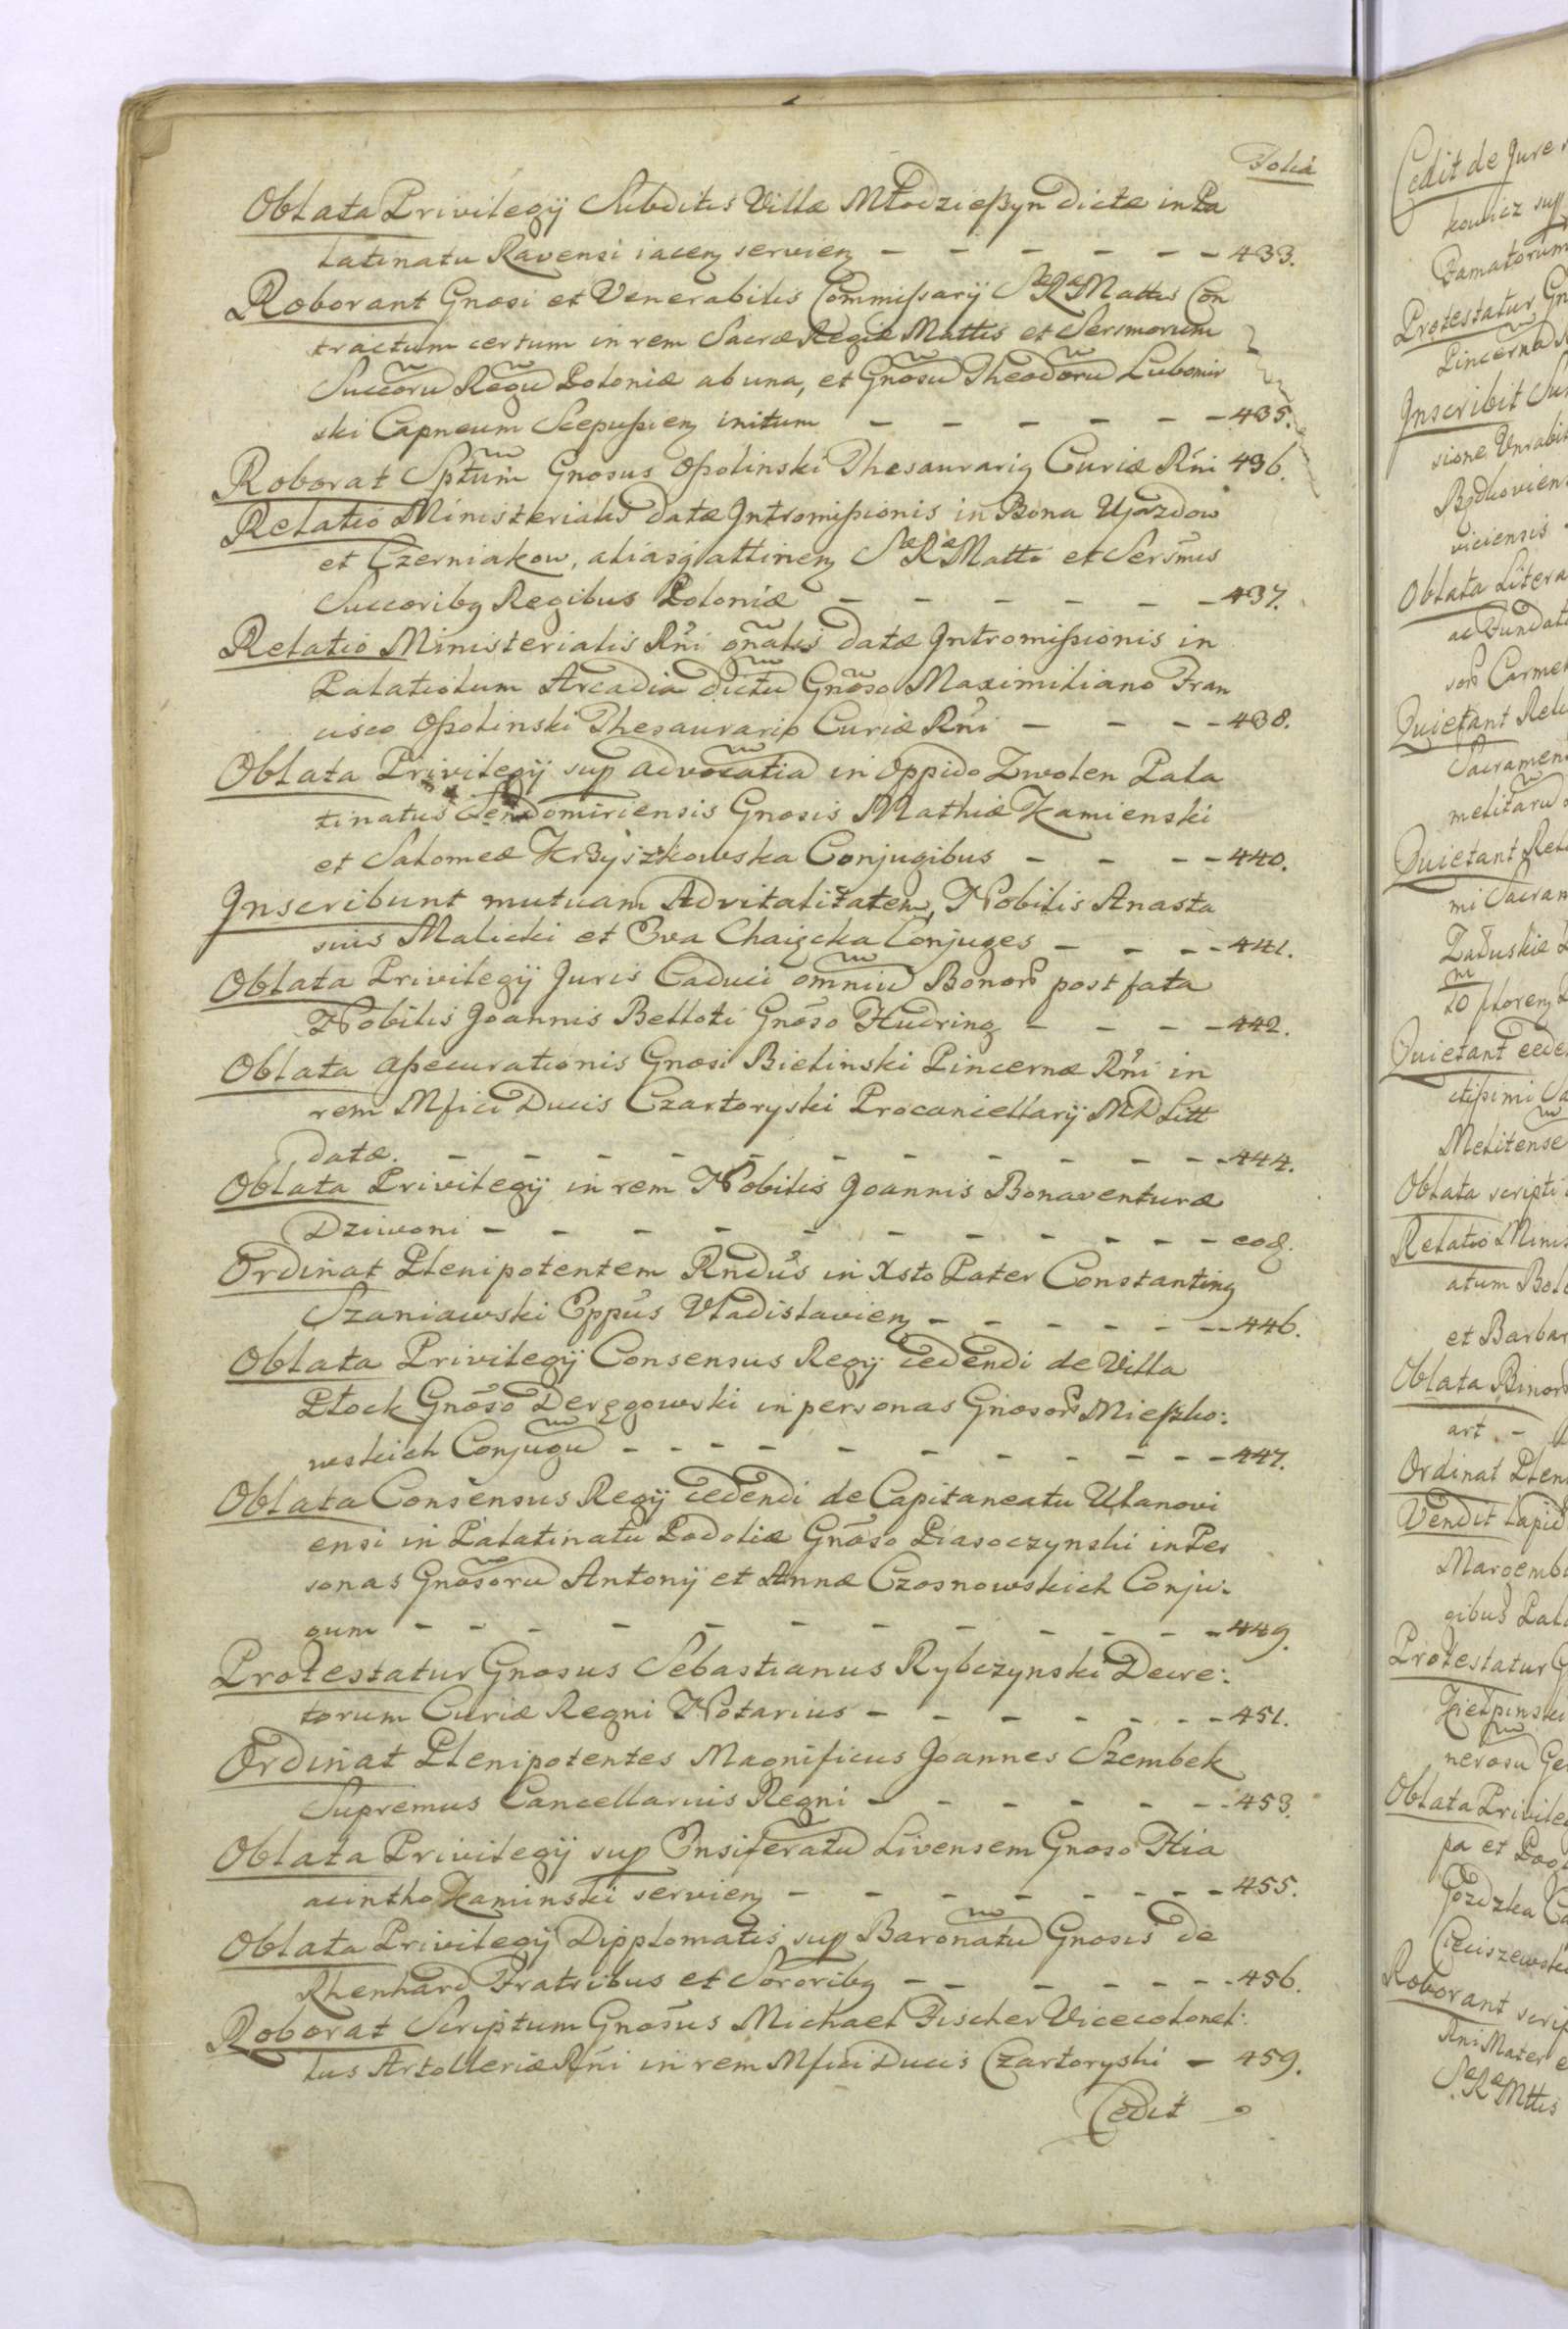 Folia
Oblata Privilegÿ Subditis Villæ Młodzieszyn dictæ in Pa
latinatu Ravensi iacen servien - - - - - - 433.
Roborant Gnosi et Venerabilis Commissarÿ Sæ Ræ Mattis Con
tractum certum in rem Sacræ Regiæ Mattis et Sersmorum
Succorũ Regũ Poloniæ ab una, et Gnosũ Theodorũ Lubomir
ski Capneum Scepusien initum - - - - - - 435.
Roborat Sptum Gnosus Ossolinski Thesaurariq Curiæ Rñi 436.
Relatio Ministerialis datæ Intromissionis in Bona Ujazdow
et Czerniakow, aliasq attinen Sæ Ræ Matti et Sersmis
Succoribq Regibus Poloniæ - - - - - - 437.
Relatio Ministerialis Rñi gñalis datæ Intromissionis in
Palatiolum Arcadia dictũ Gnõso Maximiliano Fran
cisco Ossolinski Thesaurario Curiæ Rñi - - - - 438.
Oblata Privilegÿ sup advocatiã in Oppido Zwolen Pala
tinatus Sendomiriensis Gnosis Mathiæ Kamienski
et Salomeæ Krzyszkowska Conjugibus - - - - 440.
Inscribunt mutuam Advitalitatem, Nobilis Anasta
sius Malicki et Eva Chaiecka Conjuges - - - - 441.
Oblata Privilegÿ Juris Caduci omniũ Bonor post fata
Nobilis Joannis Belloti Gnõso Hudring - - - - 442.
Oblata assecurationis Gnosi Bielinski Pincernæ Rñi in
rem Mfici Ducis Czartoryski Procancellarÿ MD Litt
datæ. - - - - - - - - - - - 444.
Oblata Privilegÿ in rem Nobilis Joannis Bonaventuræ
Dziwoni - - - - - - - - - - eod.
Ordinat Plenipotentem Rndus in Xsto Pater Constantinq
Szaniawski Eppus Vladislavien - - - - - - 446.
Oblata Privilegÿ Consensus Regÿ cedendi de Villa
Płock Gnõso Deręgowski in personas Gnosor Mieszko:
wskich Conjugũ - - - - - - - - - - 447.
Oblata Consensus Regÿ cedendi de Capitaneatu Ulanovi
ensi in Palatinatu Podoliæ Gnõso Piasoczynski in Per
sonas Gnosorũ Antonÿ et Annæ Czosnowskich Conju-
gum - - - - - - - - - - - 449.
Protestatur Gnosus Sebastianus Rybczynski Decre:
torum Curiæ Regni Notarius - - - - - - - 451.
Ordinat Plenipotentes Magnificus Joannes Szembek
Supremus Cancellarius Regni - - - - - - 453.
Oblata Privilegÿ sup Ensiferatũ Livensem Gnoso Hia
acintho Kaminski servien - - - - - - - 455.
Oblata Privilegÿ Dipplomatis sup Baronatũ Gnosis de
Rhenhard Fratribus et Sororibq - - - - - - - 456.
Roborat Scriptum Gnosus Michael Fischer Vicecolonel:
lus Artolleriæ Rñi in rem Mfici Ducis Czartoryski - 459.
Cedit
Cedit de Jure
kowicz sup
Famatorum
Protestatur Gn
Pincerna
Inscribit Su
sione Vnrabi
Bydhovien
viciensis
Oblata Litera
ac Fundati
sor Carme
Quietant Rel
Sacramen
melitarũ
Quietant Rel
mi Sacram
Załuskie
10 floren
Quietant cede
ctissimi
Melitense
Oblata scripti
Relatio Minis
atum Bol
et Barbar
Oblata Binor
art. -
Ordinat Plen
Vendit Lapid
Margemb
gibus Pal
Protestatur G
Kiełpinski
nerosũ Ge
Oblata Privile
pa et Pog
Jozdzka Ca
Cieciszewski
Roborant scrip
Rni Mater e
Sæ Ræ Mttis